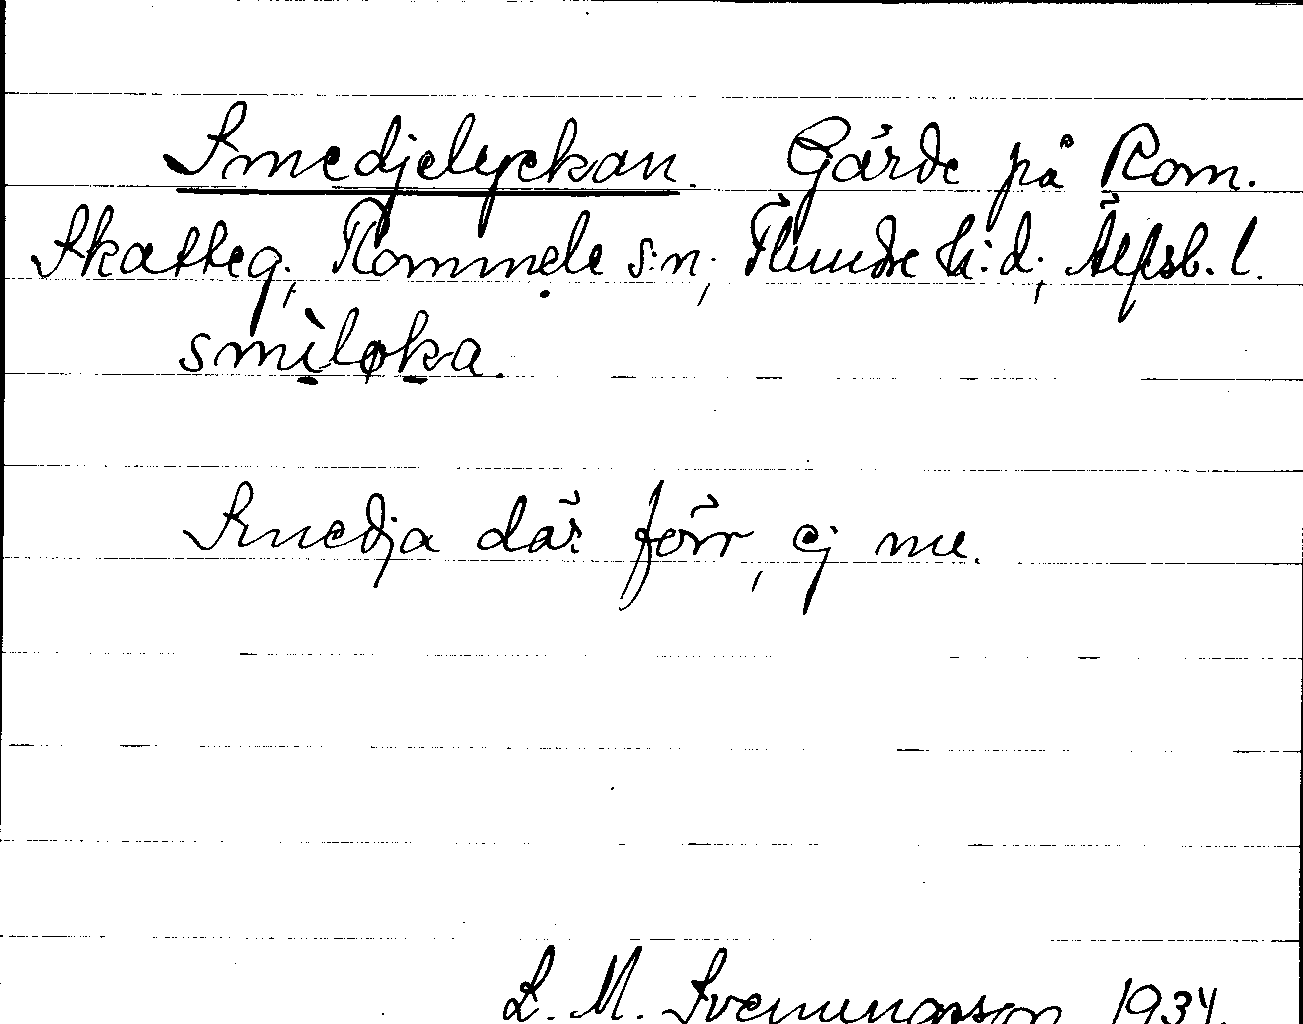 Smedjelyckan. Gärde på Rom.
Skatteg., Rommele s:n, Flundre h:d, Älfsb. l.
smìløka.
Smedja där förr, ej nu.
S. M. Svenungsson 1934.